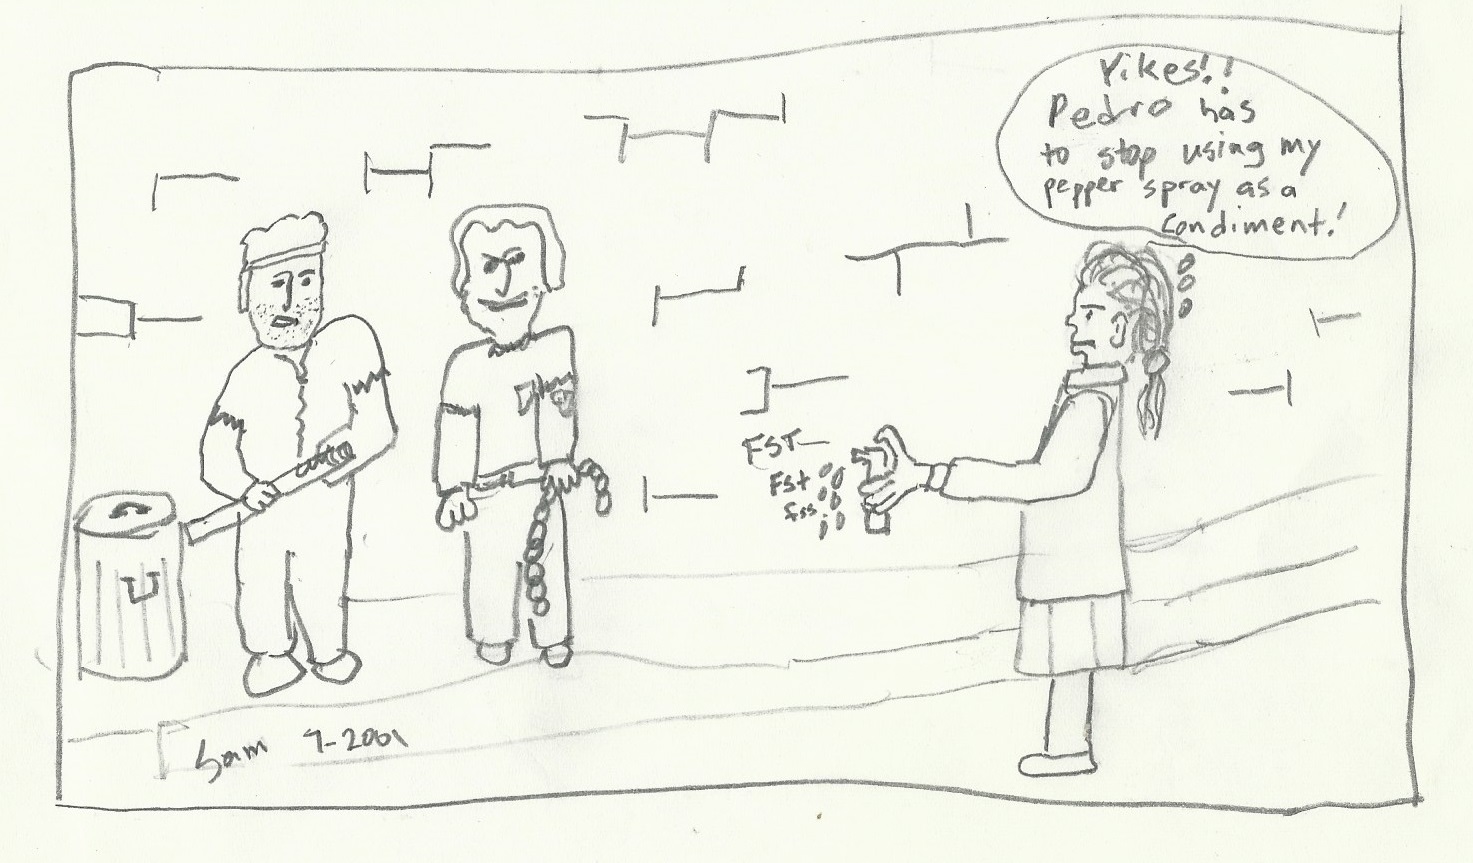 Yikes!!
Pedro has
to stop using my
pepper spray as a
condiment!
FST—
Fst
fss
Sam 9-2001